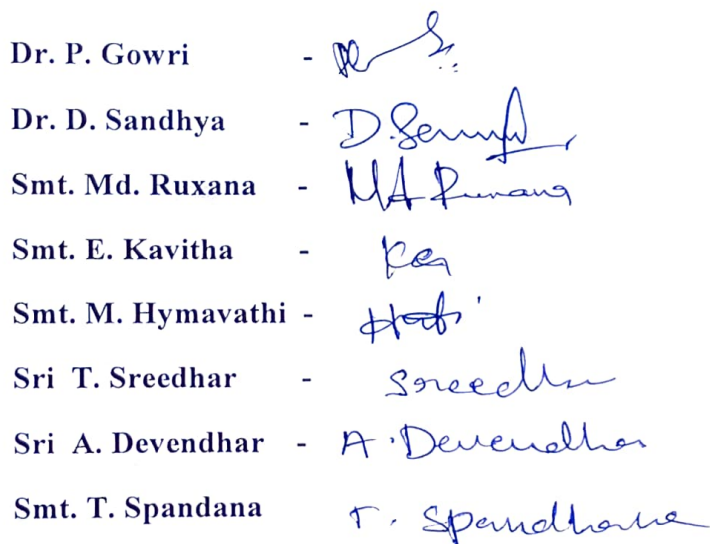 Dr. P. Gowri -
Dr. D. Sandhya - D. Sandhya
Smt. Md. Ruxana - Md Ruxana
Smt. E. Kavitha -
Smt. M. Hymavathi -
Sri T. Sreedhar - Sreedhar
Sri A. Devendhar - A. Devendhar
Smt. T. Spandana T. Spandhana